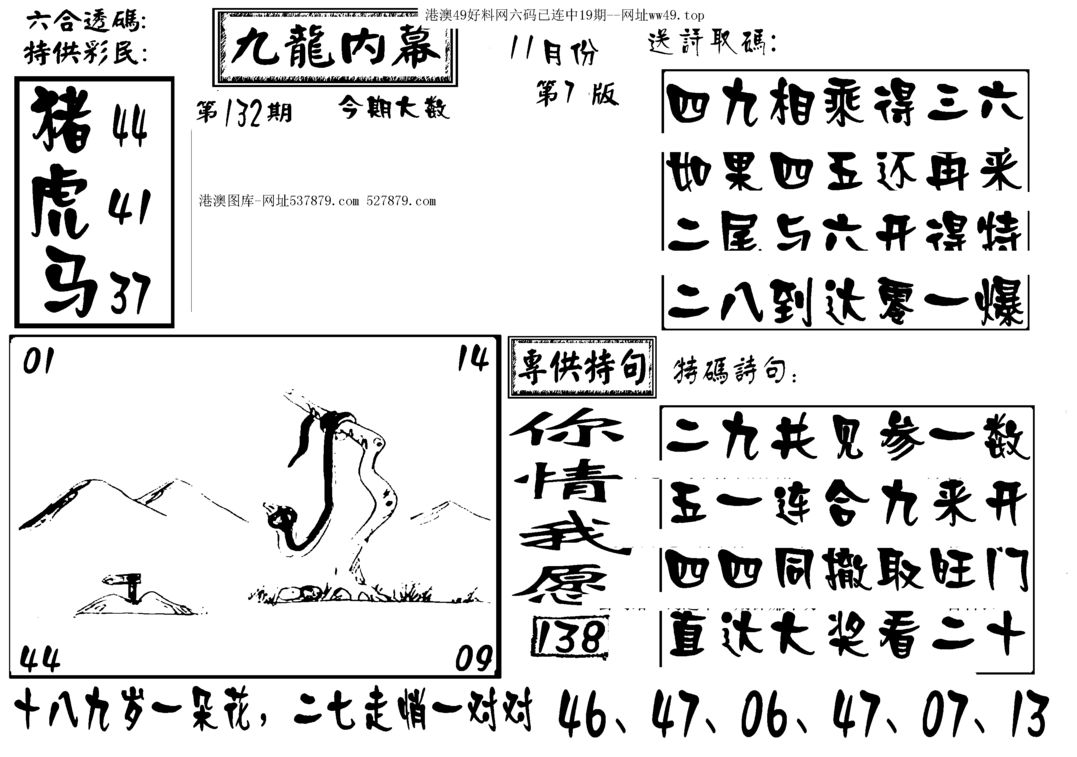 港澳49好料网六码已连中19期--网址ww49.top
六合透碼:
特供彩民:
九龍内幕
11月份
第7版
送詩取碼:
第132期
今期大数
猪 44
虎 41
马 37
港澳图库-网址537879.com 527879.com
四九相乘得三六
如果四五还再来
二尾与六开得特
二八到达零一爆
01
14
44
09
專供特句
你情我愿
138
特碼詩句:
二九共见参一数
五一连合九来开
四四同撤取旺门
直达大奖看二十
十八九岁一朵花，二七走悄一对对
46、47、06、47、07、13